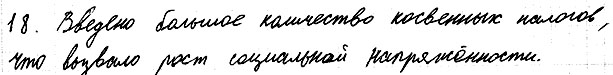 18. Введено большое количество косвенных налогов,
что вызвало рост социальной напряжённости.